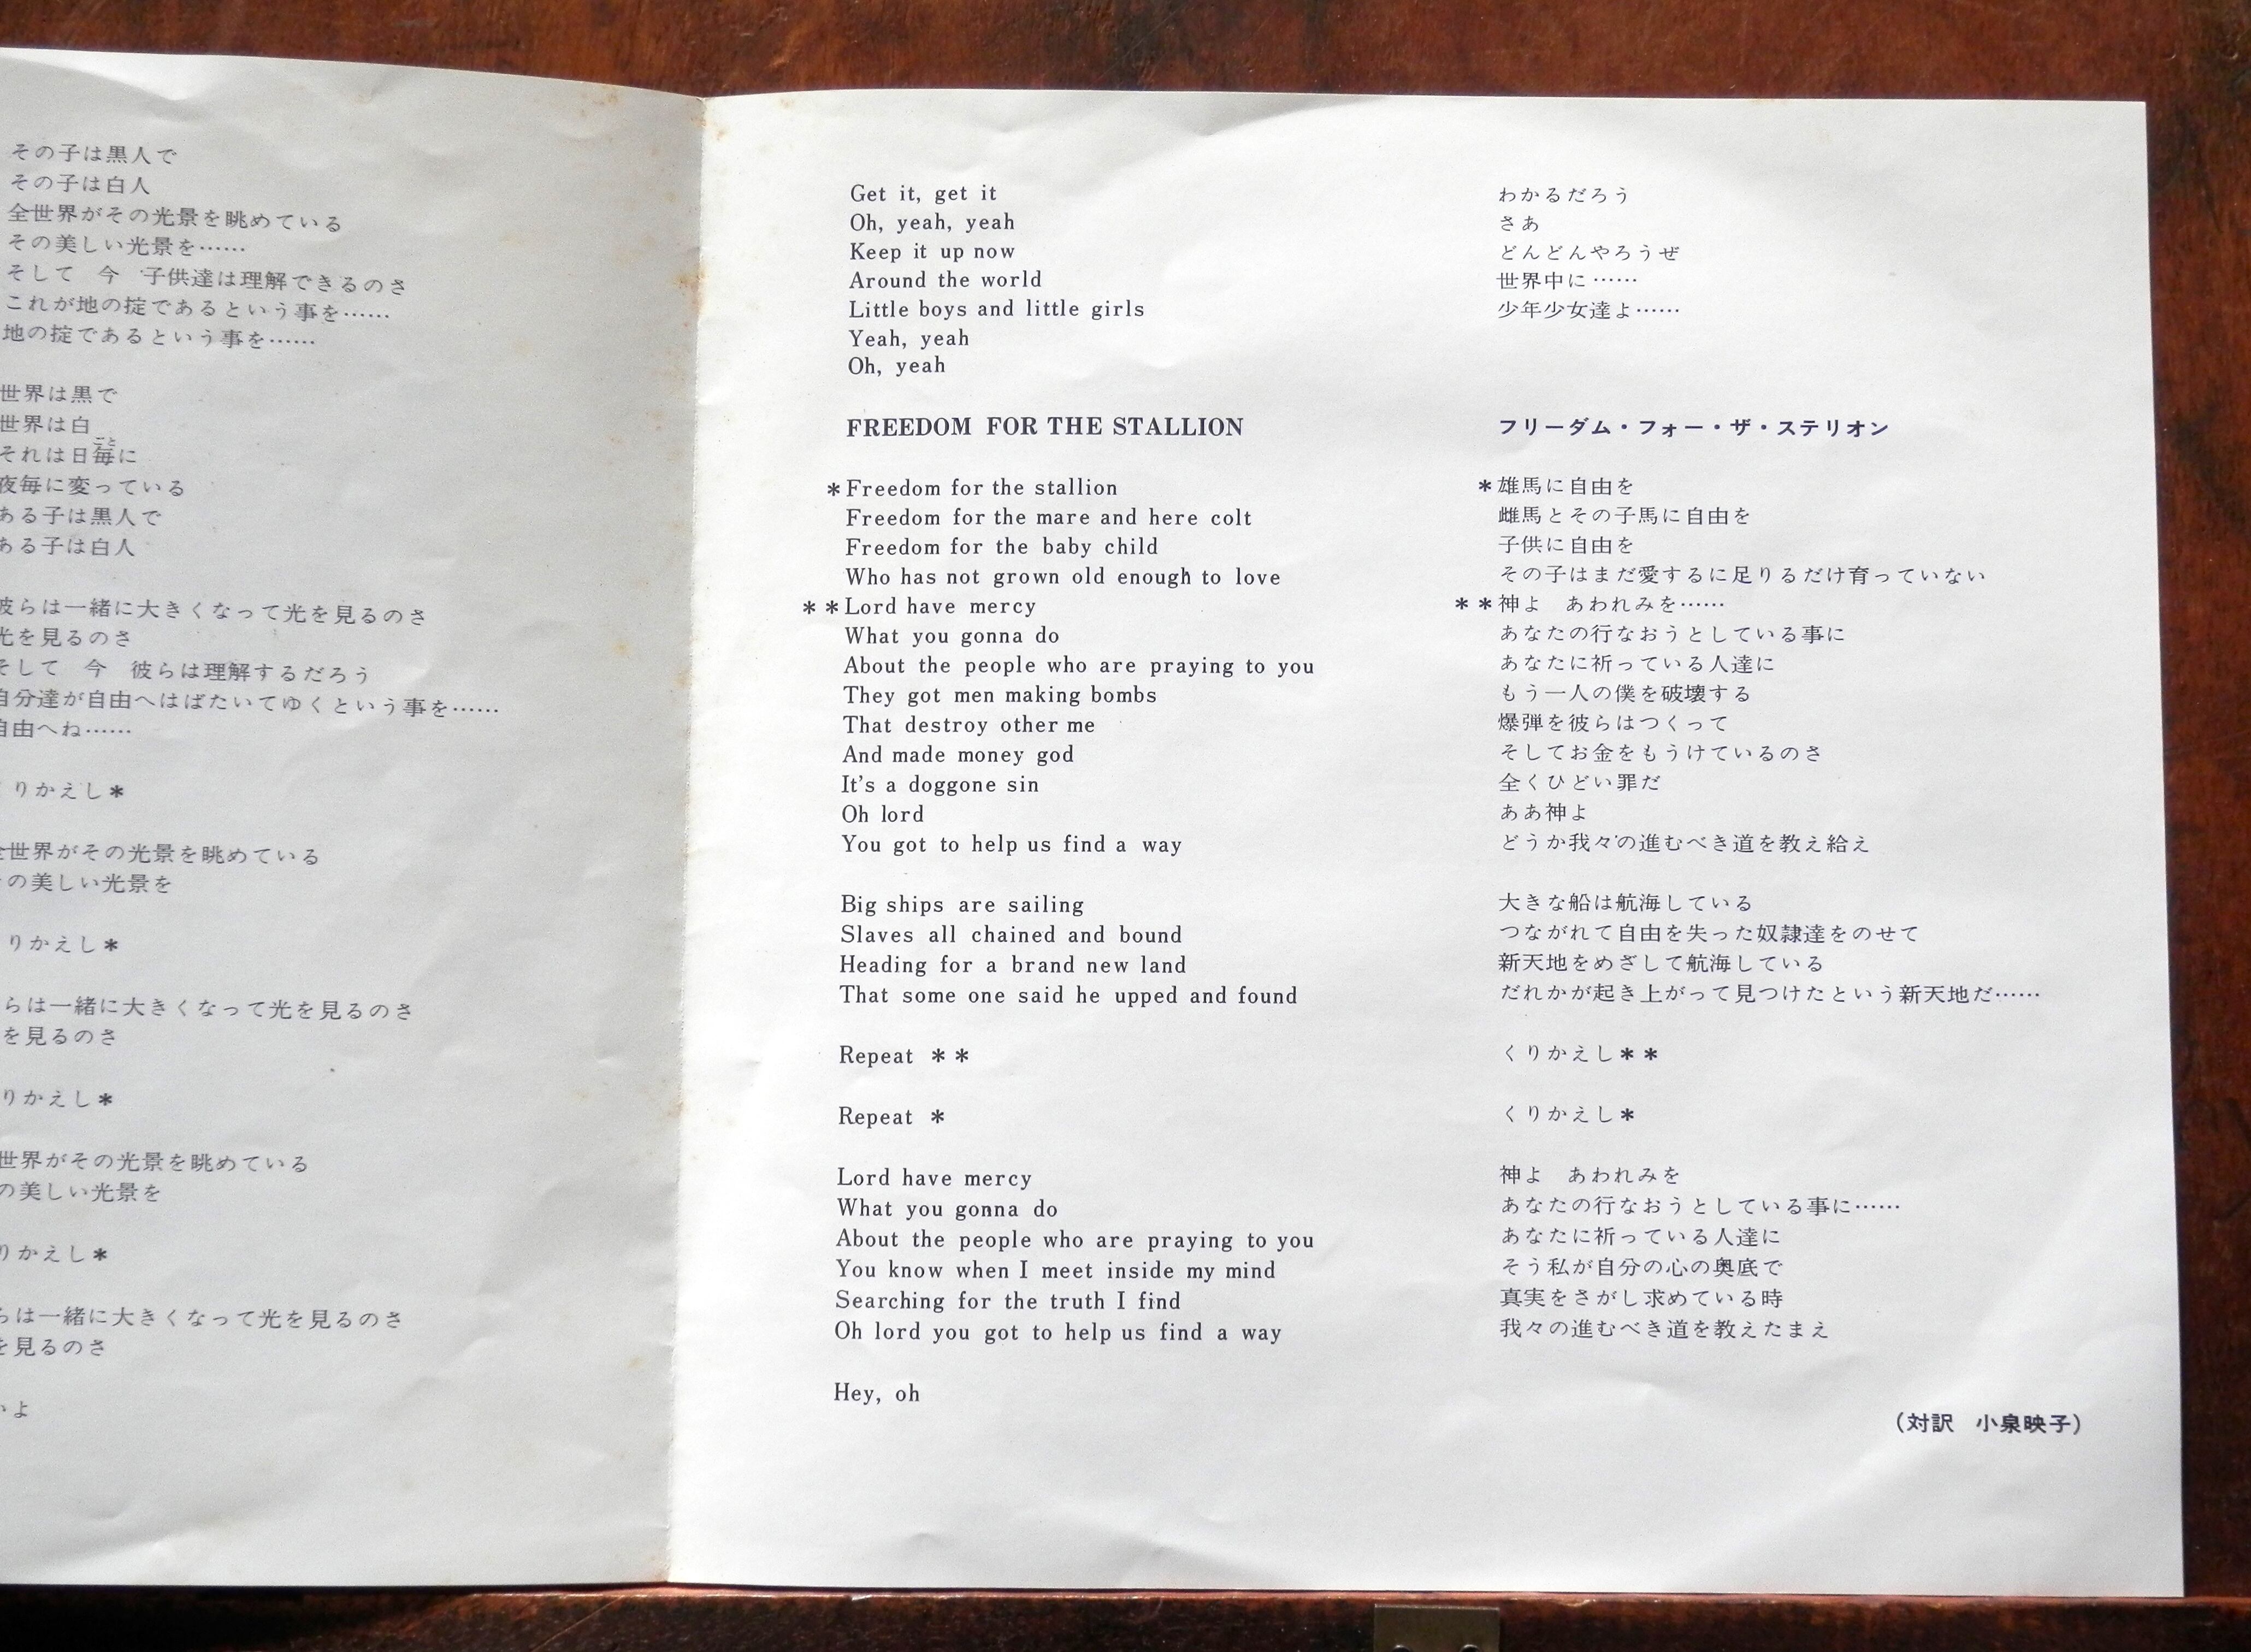 その子は黒人で
その子は白人
全世界がその光景を眺めている
その美しい光景を……
そして　今　子供達は理解できるのさ
これが地の掟であるという事を……
地の掟であるという事を……
世界は黒で
世界は白
それは日毎に
ごと
夜毎に変っている
ある子は黒人で
ある子は白人
彼らは一緒に大きくなって光を見るのさ
光を見るのさ
そして　今　彼らは理解するだろう
自分達が自由へはばたいてゆくという事を……
自由へね……
りかえし＊
全世界がその光景を眺めている
の美しい光景を
りかえし＊
らは一緒に大きくなって光を見るのさ
を見るのさ
りかえし＊
世界がその光景を眺めている
の美しい光景を
りかえし＊
らは一緒に大きくなって光を見るのさ
を見るのさ
よ
Get it, get it
Oh, yeah, yeah
Keep it up now
Around the world
Little boys and little girls
Yeah, yeah
Oh, yeah
FREEDOM FOR THE STALLION
＊Freedom for the stallion
Freedom for the mare and here colt
Freedom for the baby child
Who has not grown old enough to love
＊＊Lord have mercy
What you gonna do
About the people who are praying to you
They got men making bombs
That destroy other me
And made money god
It's a doggone sin
Oh lord
You got to help us find a way
Big ships are sailing
Slaves all chained and bound
Heading for a brand new land
That some one said he upped and found
Repeat ＊＊
Repeat ＊
Lord have mercy
What you gonna do
About the people who are praying to you
You know when I meet inside my mind
Searching for the truth I find
Oh lord you got to help us find a way
Hey, oh
わかるだろう
さあ
どんどんやろうぜ
世界中に……
少年少女達よ……
フリーダム・フォー・ザ・ステリオン
＊雄馬に自由を
雌馬とその子馬に自由を
子供に自由を
その子はまだ愛するに足りるだけ育っていない
＊＊神よ　あわれみを……
あなたの行なおうとしている事に
あなたに祈っている人達に
もう一人の僕を破壊する
爆弾を彼らはつくって
そしてお金をもうけているのさ
全くひどい罪だ
ああ神よ
どうか我々の進むべき道を教え給え
大きな船は航海している
つながれて自由を失った奴隷達をのせて
新天地をめざして航海している
だれかが起き上がって見つけたという新天地だ……
くりかえし＊＊
くりかえし＊
神よ　あわれみを
あなたの行なおうとしている事に……
あなたに祈っている人達に
そう私が自分の心の奥底で
真実をさがし求めている時
我々の進むべき道を教えたまえ
（対訳　小泉映子）